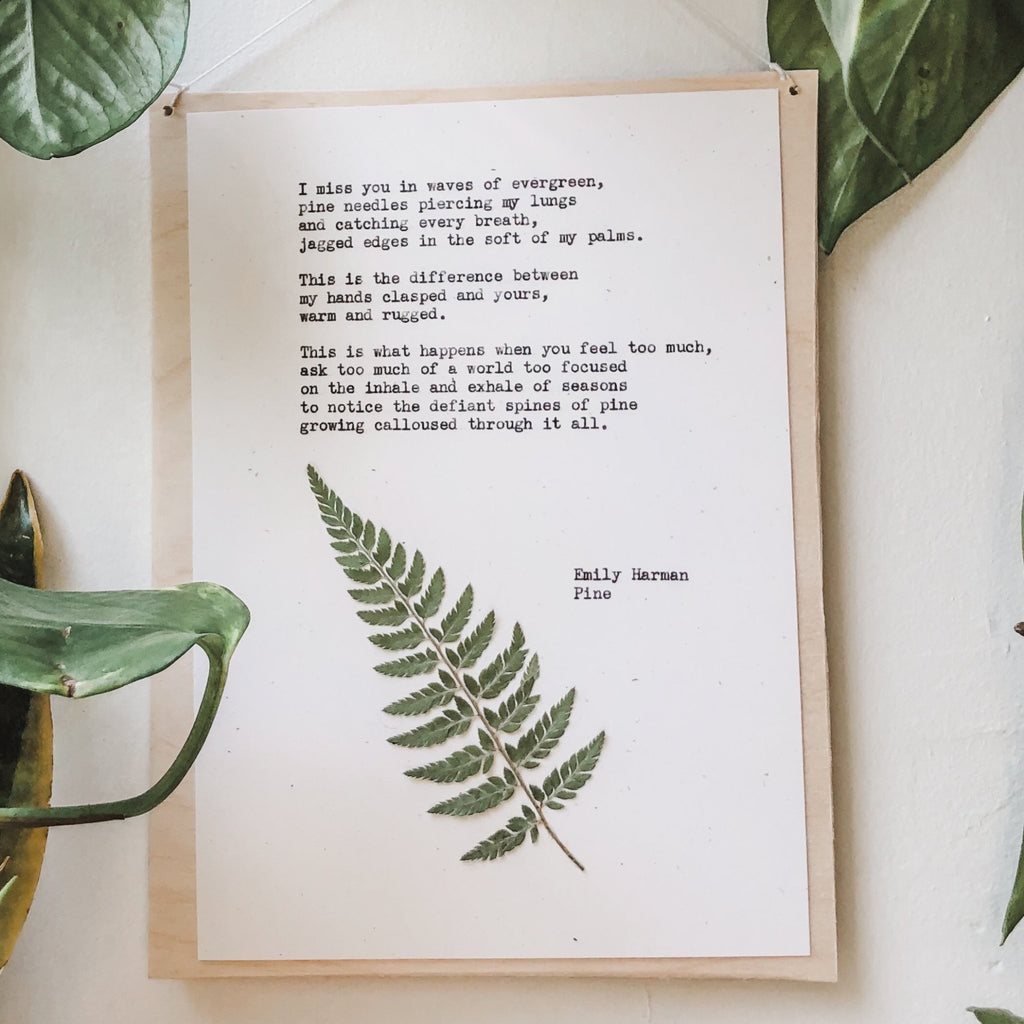 I miss you in waves of evergreen,
pine needles piercing my lungs
and catching every breath,
jagged edges in the soft of my palms.
This is the difference between
my hands clasped and yours,
warm and rugged.
This is what happens when you feel too much,
ask too much of a world too focused
on the inhale and exhale of seasons
to notice the defiant spines of pine
growing calloused through it all.
Emily Harman
Pine